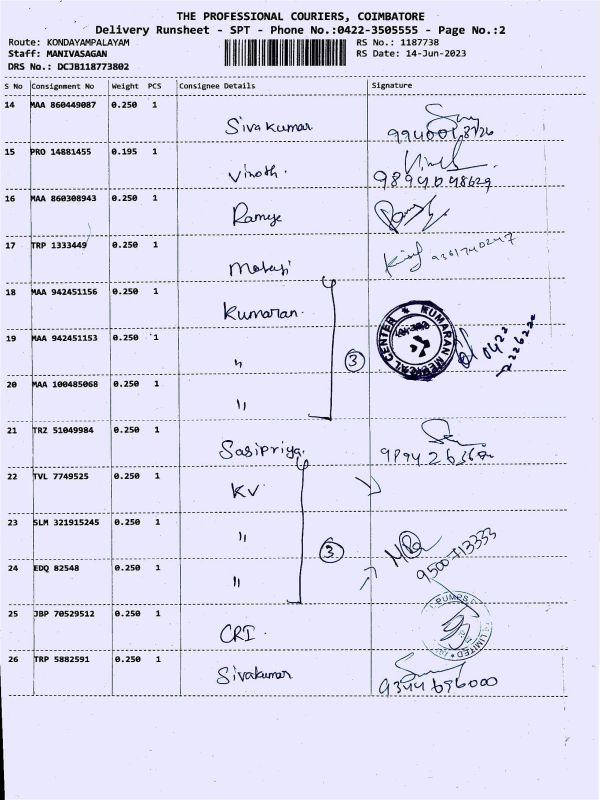 THE PROFESSIONAL COURIERS, COIMBATORE
Delivery Runsheet - SPT - Phone No.:0422-3505555 - Page No.:2
Route: KONDAYAMPALAYAM RS No.: 1187738
Staff: MANIVASAGAN RS Date: 14-Jun-2023
DRS No.: DCJB118773802
S No Consignment No Weight PCS Consignee Details Signature
14 MAA 860449087 0.250 1
Sivakumar
15 PRO 14881455 0.195 1
Vinoth.
9894048629
16 MAA 860308943 0.250 1
Ramya
17 TRP 1333449 0.250 1
18 MAA 942451156 0.250 1
Kumaran.
KUMARAN MEDICAL CENTER
19 MAA 942451153 0.250 1
"
3
0422
20 MAA 100485068 0.250 1
"
21 TRZ 51049984 0.250 1
Sasipriya.
22 TVL 7749525 0.250 1
KV
23 SLM 321915245 0.250 1
"
3
9500713333
24 EDQ 82548 0.250 1
"
25 JBP 70529512 0.250 1
CRI.
PUMPS LIMITED
26 TRP 5882591 0.250 1
Sivakumar
9344696000